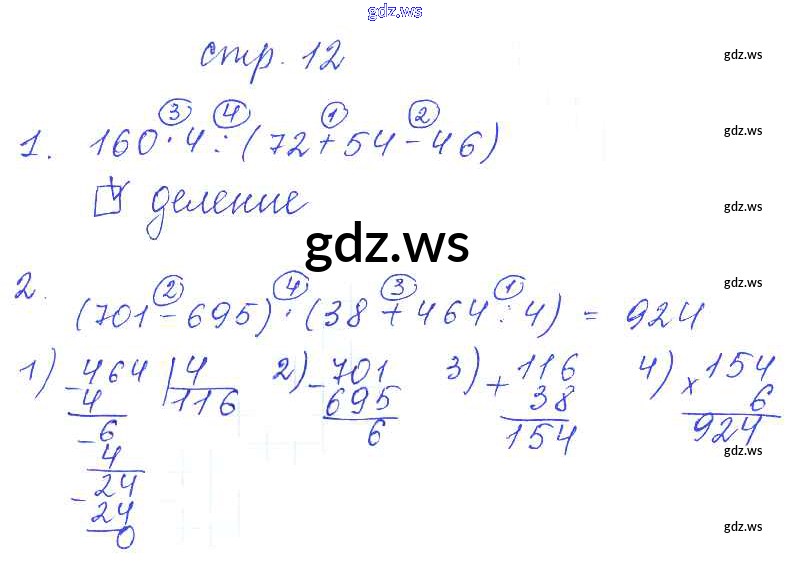 gdz.ws
стр. 12
gdz.ws
gdz.ws
3 4 1 2
1. 160 · 4 : (72 + 54 - 46)
деление
gdz.ws
gdz.ws
2 4 3 1
2. (701 - 695) · (38 + 464 : 4) = 924
gdz.ws
gdz.ws
1) - 464 | 4 2) - 701 3) + 116 4) × 154
4 116 695 38 6
- 6 6 154 924
4
gdz.ws
- 24
24
0
gdz.ws